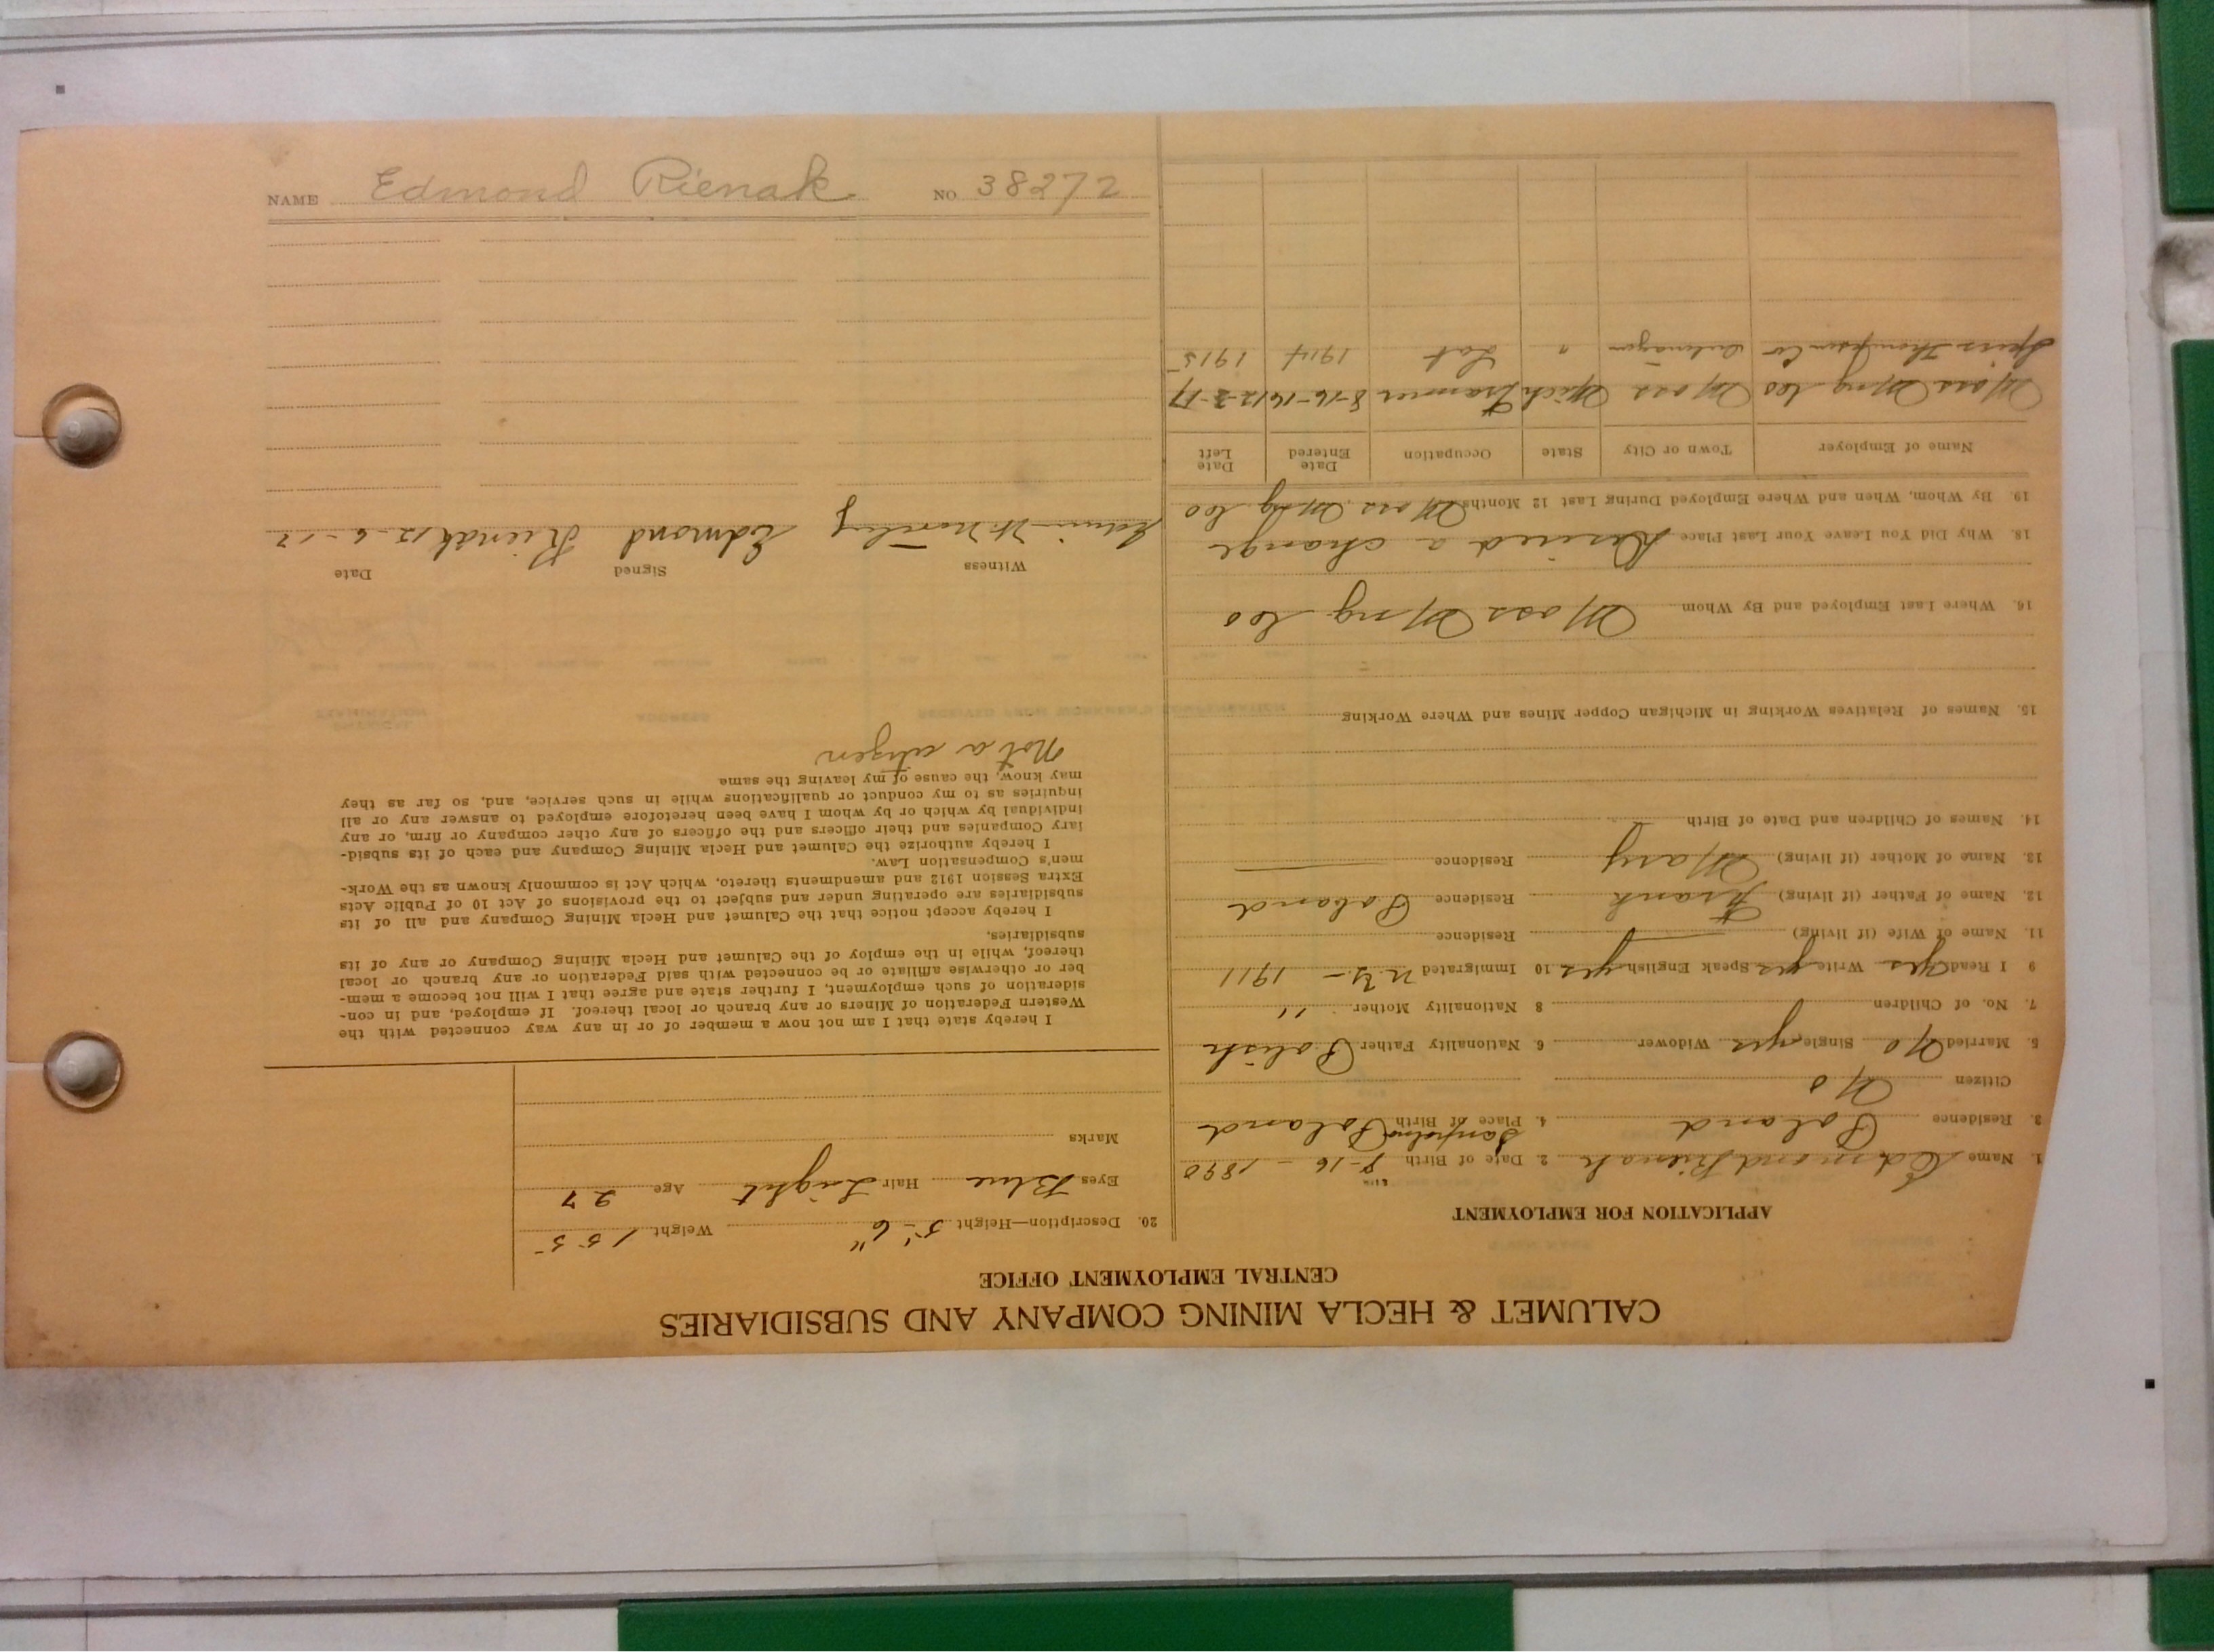 CALUMET & HECLA MINING COMPANY AND SUBSIDIARIES
CENTRAL EMPLOYMENT OFFICE
APPLICATION FOR EMPLOYMENT
1. Name Edmond Rienak 2. Date of Birth 8-16-1890
3. Residence Poland 4. Place of Birth Poland
Citizen No
5. Married No Single yes Widower 6. Nationality Father Polish
7. No. of Children 8 Nationality Mother "
9 I Read yes Write yes Speak English yes 10 Immigrated N.Y- 1911
11. Name of Wife (if living) Residence
12. Name of Father (if living) Frank Residence Poland
13. Name of Mother (if living) Mary Residence
14. Names of Children and Date of Birth
15. Names of Relatives Working in Michigan Copper Mines and Where Working
16. Where Last Employed and By Whom Mass Mng Co
18. Why Did You Leave Your Last Place Desired a change
19. By Whom, When and Where Employed During Last 12 Months Mass Mng Co
Name of Employer Town or City State Occupation Date Entered Date Left
Mass Mng Co Mass Mich Trammer 8-16-16 12-3-17
Thompson Co " Lab 1914 1915
20. Description—Height 5'-6" Weight 155
Eyes Blue Hair Light Age 27
Marks
I hereby state that I am not now a member of or in any way connected with the
Western Federation of Miners or any branch or local thereof. If employed, and in con-
sideration of such employment, I further state and agree that I will not become a mem-
ber or otherwise affiliate or be connected with said Federation or any branch or local
thereof, while in the employ of the Calumet and Hecla Mining Company or any of its
subsidiaries.
I hereby accept notice that the Calumet and Hecla Mining Company and all of its
subsidiaries are operating under and subject to the provisions of Act 10 of Public Acts
Extra Session 1912 and amendments thereto, which Act is commonly known as the Work-
men's Compensation Law.
I hereby authorize the Calumet and Hecla Mining Company and each of its subsid-
iary Companies and their officers and the officers of any other company or firm, or any
individual by which or by whom I have been heretofore employed to answer any or all
inquiries as to my conduct or qualifications while in such service, and, so far as they
may know, the cause of my leaving the same
Not a citizen
Witness Signed Date
Edmond Rienak 12-6-17
NAME Edmond Rienak NO. 38272